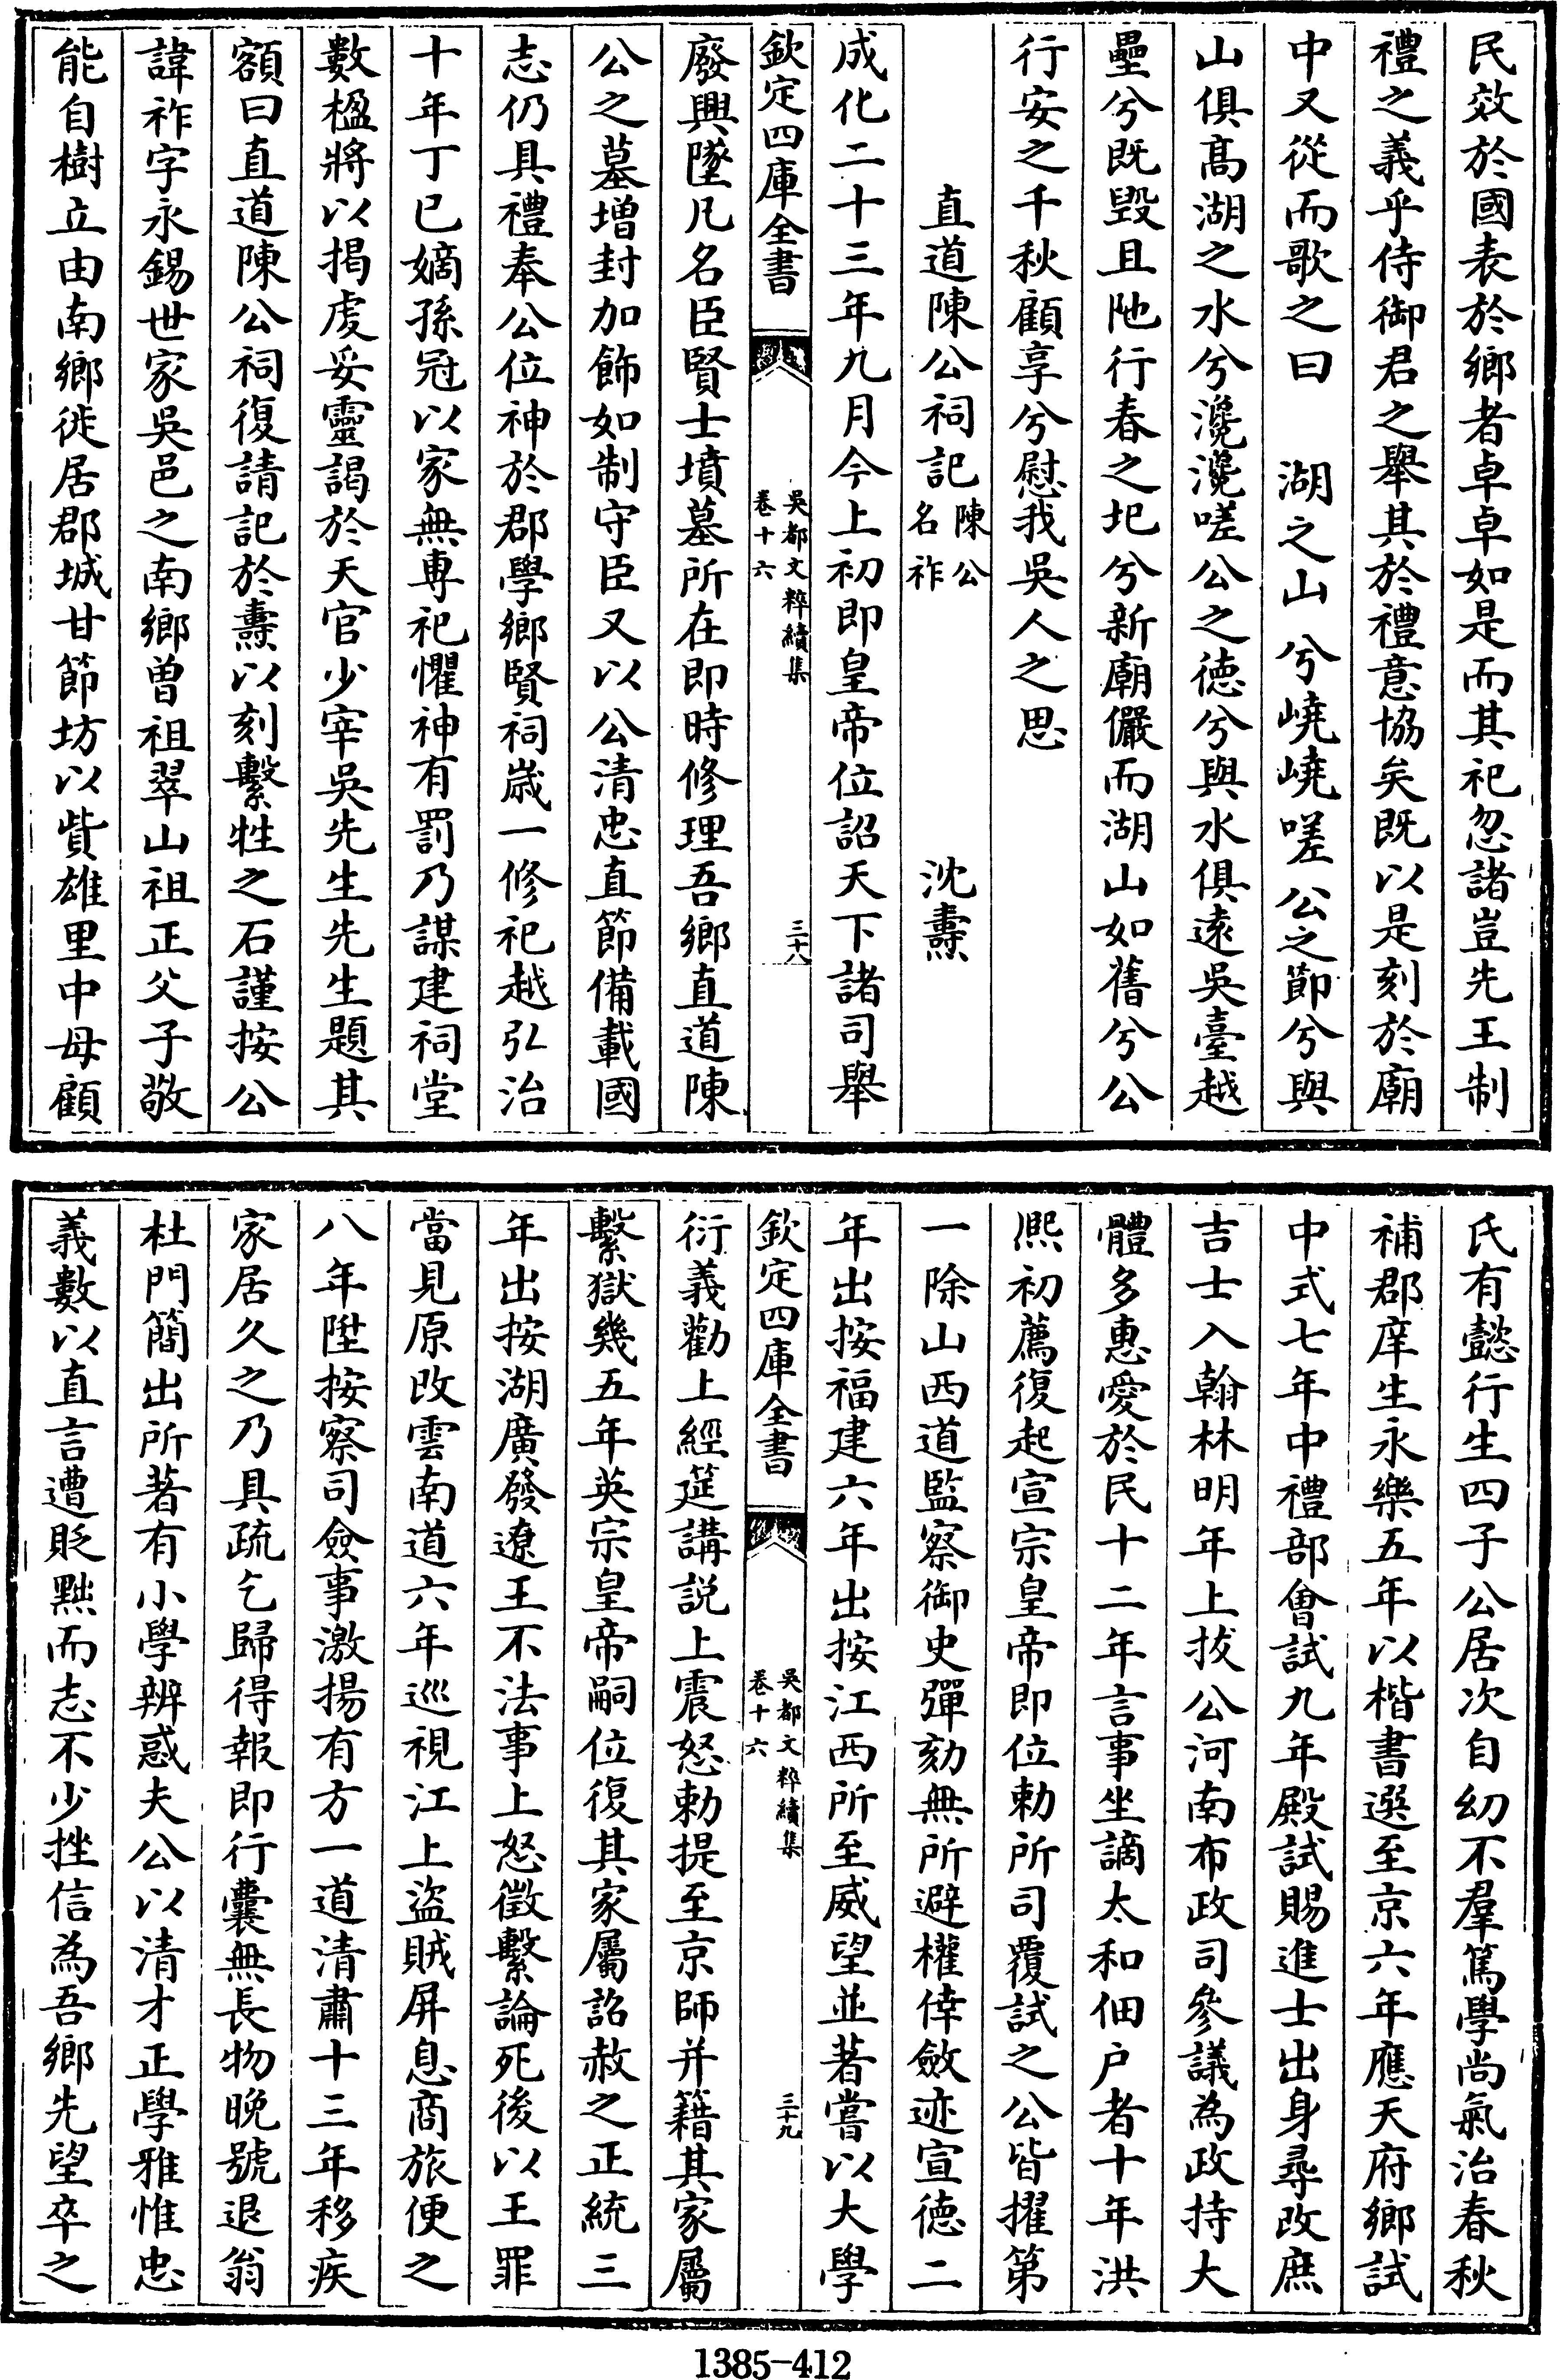 民效於國表於鄉者卓卓如是而其祀忽諸豈先王制
禮之義乎侍御君之舉其於禮意協矣既以是刻於廟
中又從而歌之曰　湖之山兮嶢嶢嗟公之節兮與
山俱髙湖之水兮瀺瀺嗟公之徳兮與水俱遠吳臺越
壘兮既毀且阤行春之圯兮新廟儼而湖山如舊兮公
行安之千秋顧享兮慰我吳人之思
直道陳公祠記陳公名祚　沈燾
成化二十三年九月今上初即皇帝位詔天下諸司舉
欽定四庫全書　吳都文粹續集卷十六　三十八
廢興墜凡名臣賢士墳墓所在即時修理吾鄉直道陳
公之墓增封加飾如制守臣又以公清忠直節備載國
志仍具禮奉公位神於郡學鄉賢祠歳一修祀越弘治
十年丁巳嫡孫冠以家無専祀懼神有罰乃謀建祠堂
數楹將以掲虔妥靈謁於天官少宰吳先生先生題其
額曰直道陳公祠復請記於燾以刻繫牲之石謹按公
諱祚字永錫世家吳邑之南鄉曽祖翠山祖正父子敬
能自樹立由南鄉徙居郡城甘節坊以貲雄里中母顧
氏有懿行生四子公居次自幼不羣篤學尚氣治春秋
補郡庠生永樂五年以楷書選至京六年應天府鄉試
中式七年中禮部會試九年殿試賜進士出身尋改庶
吉士入翰林明年上拔公河南布政司參議為政持大
體多惠愛於民十二年言事坐謫太和佃户者十年洪
熈初薦復起宣宗皇帝即位勅所司覆試之公皆擢第
一除山西道監察御史彈劾無所避權倖斂迹宣徳二
年出按福建六年出按江西所至威望並著嘗以大學
欽定四庫全書　吳都文粹續集卷十六　三十九
衍義勸上經筵講説上震怒勅提至京師并籍其家屬
繫獄幾五年英宗皇帝嗣位復其家屬詔赦之正統三
年出按湖廣發遼王不法事上怒徵繫論死後以王罪
當見原改雲南道六年巡視江上盜賊屏息商旅便之
八年陞按察司僉事激揚有方一道清肅十三年移疾
家居久之乃具疏乞歸得報即行囊無長物晚號退翁
杜門簡出所著有小學辨惑夫公以清才正學雅惟忠
義數以直言遭貶黜而志不少挫信為吾鄉先望卒之
1385-412